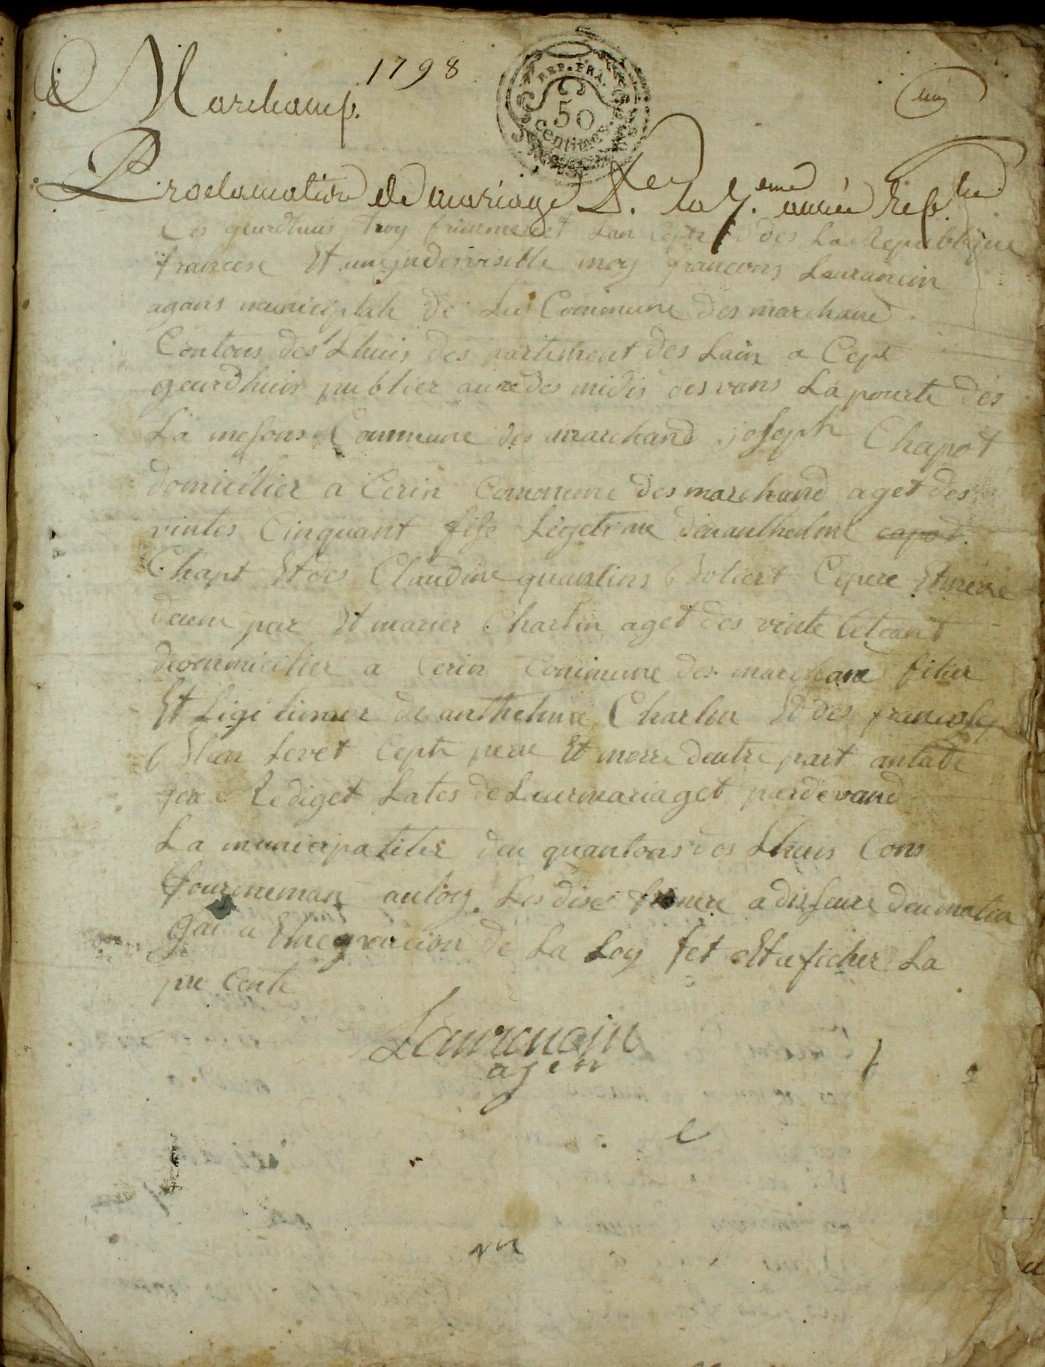 1798
Marchamp.
REP. FRA.
50
Centimes
Proclamation de mariage de la 7.eme année rep.
geurdhuis troy frimeret lan Cept des La Republique
francese Et une indesvisible moy françons Lauranein
agans municipalle de La Commune des marchand
Contons des Lhuis des partement des Lain a Cept
geurdhuis publier aures midis desvans La pourte des
La mesons Commune des marchand joseph Chapot
domicilier a Cerin Commune des marchand aget des
vintes Cinquant fils Legetime deu anthelme capot
Chapt Et des Claudine quantins Cepere Et mere
deune par Et marier Charlin aget des vente
dedoumicilier a Cerin Commune des marchand filier
Et Ligitimer de anthelme Charlin Et des
levet Cepts pere Et merre deutre part
Rediget Lates de Leur mariaget pardevand
La municipaliter deu quantons des Lhuis Cons
fourmeman auloy Les dise frimere a dis heure deu matin
La Loy fet Et aficher La
pre Cente
Lauranein
agen